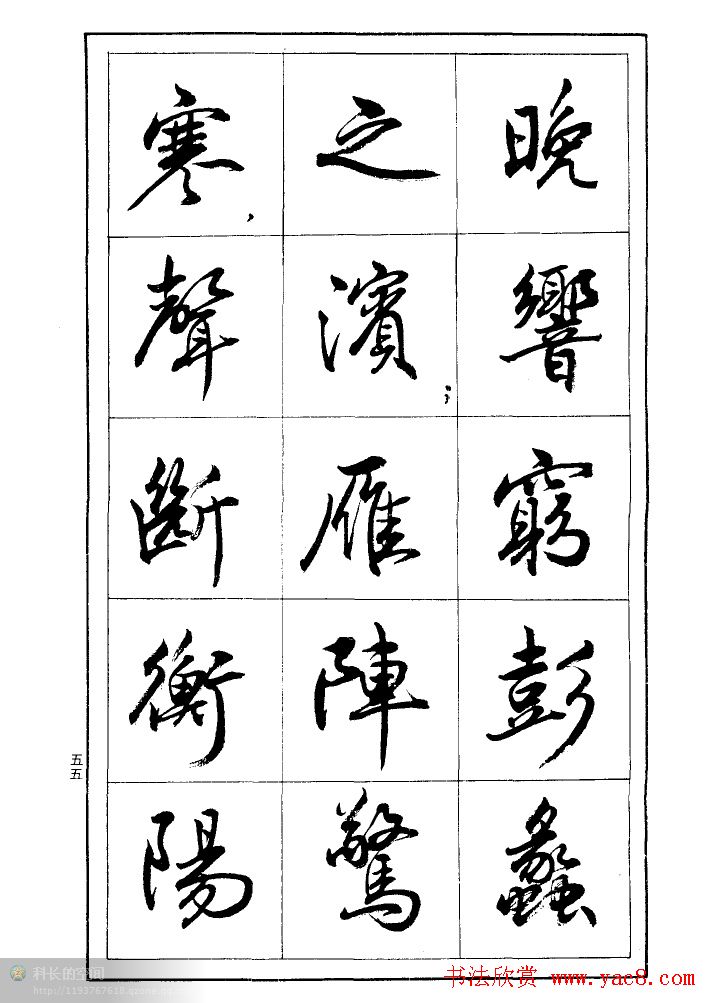 晚響窮彭蠡
之濱；雁陣驚
寒，聲斷衡陽
五五
科长的空间
http://1193767618.qzone.qq.com
书法欣赏 www.yac8.com